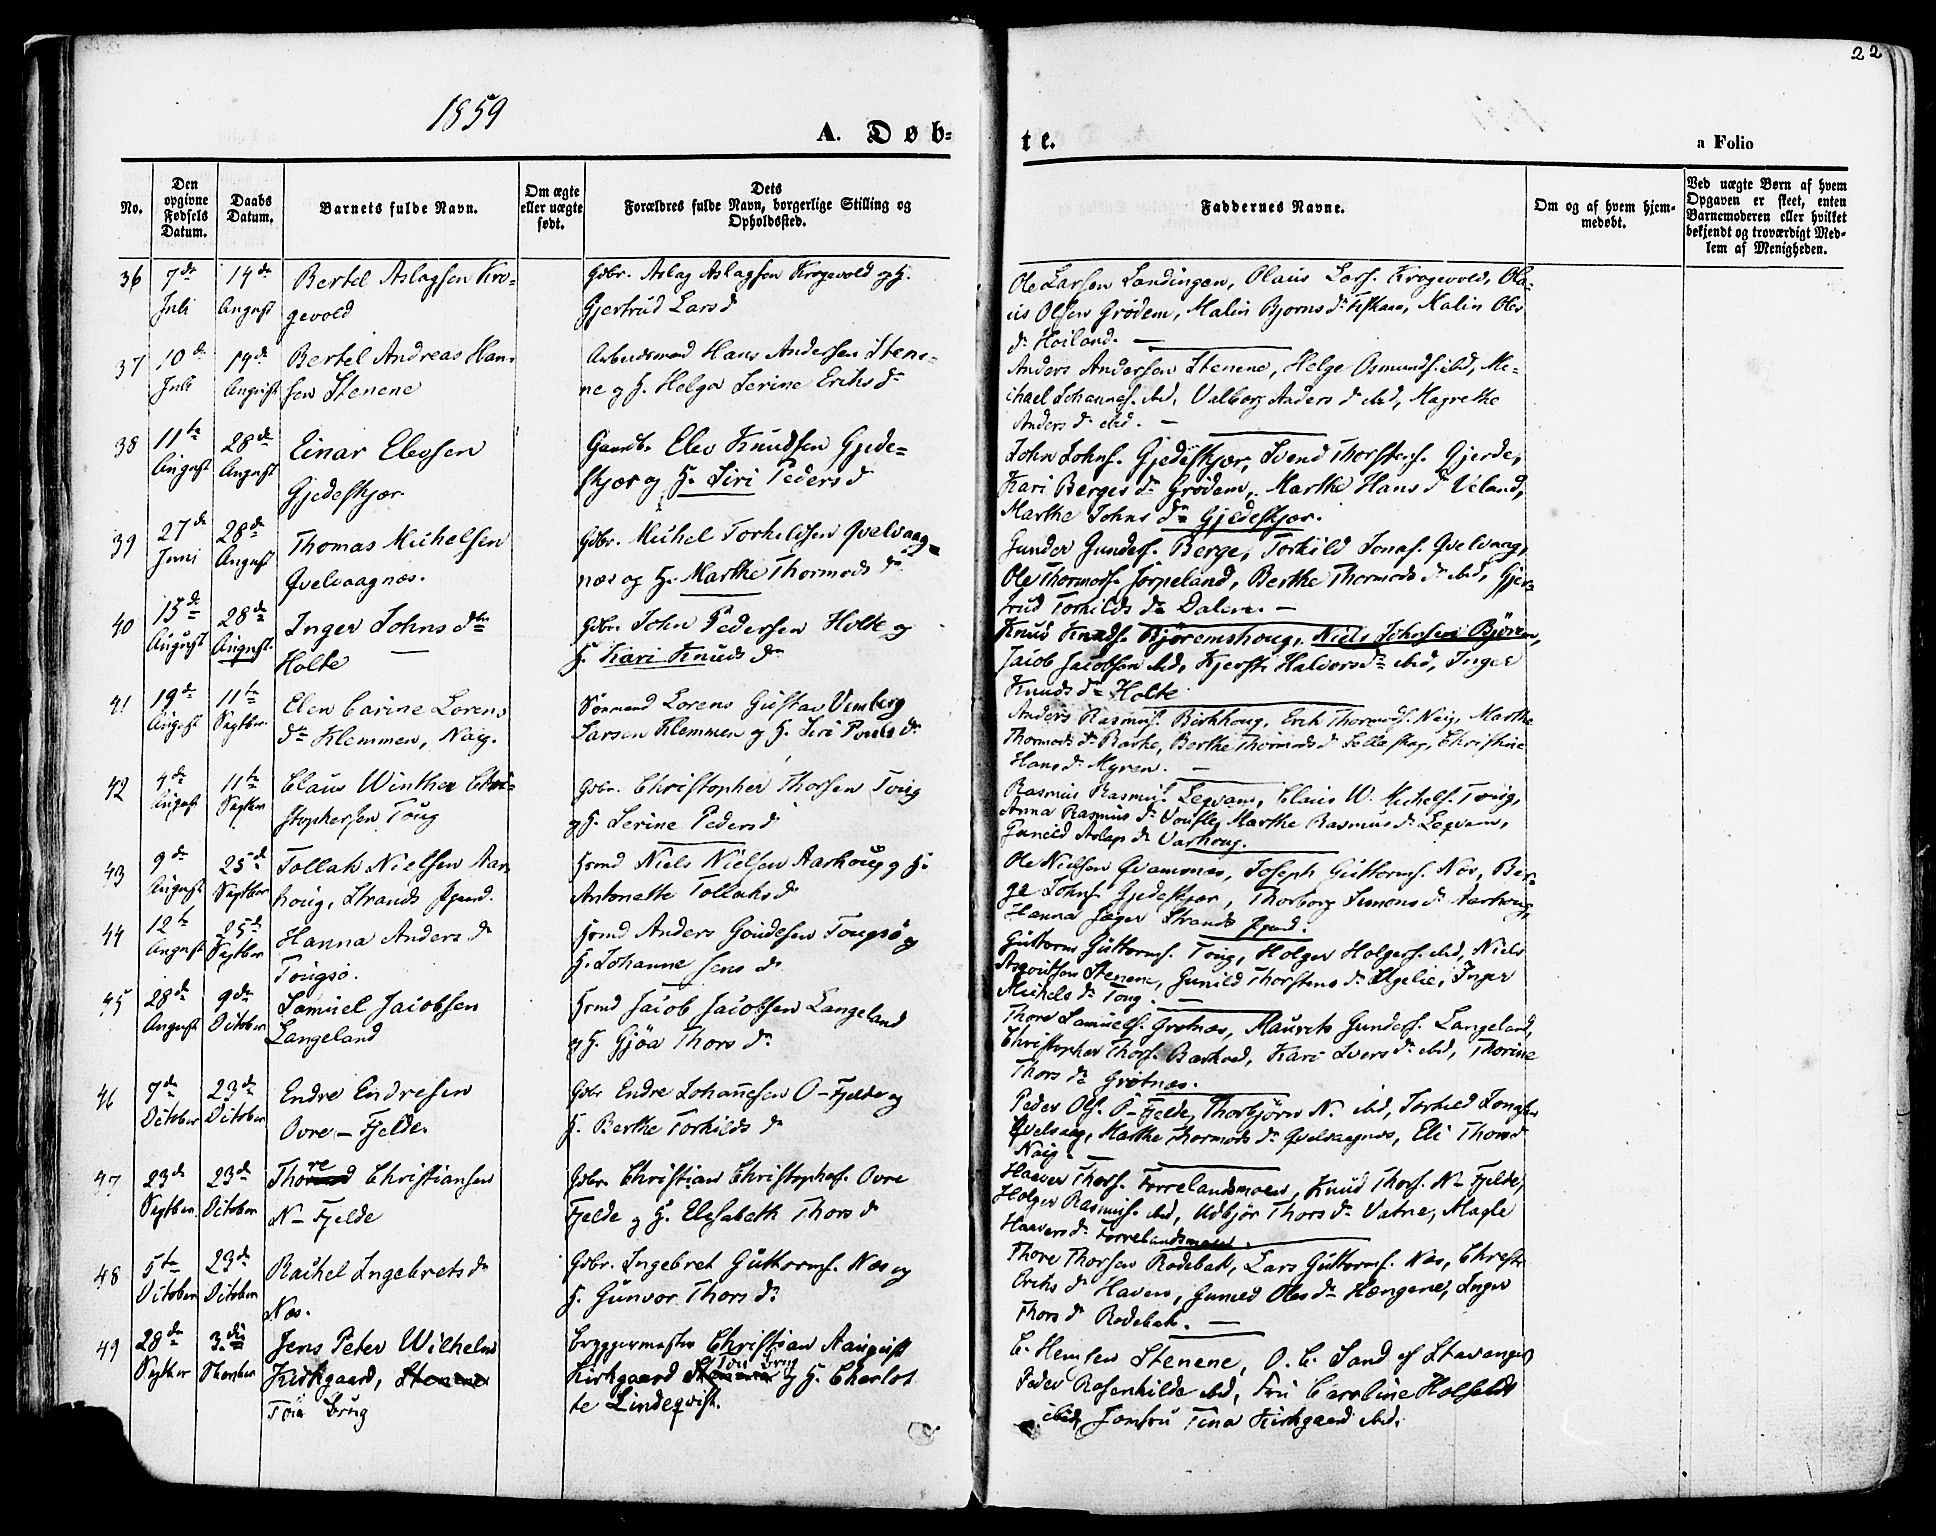 22
1859
A. Døb-
te.
a Folio
No.
Den opgivne Fødsels Datum.
Daabs Datum.
Barnets fulde Navn.
Om ægte eller uægte født.
Dets Forældres fulde Navn, borgerlige Stilling og Opholdssted.
Faddernes Navne.
Om og af hvem hjemmedøbt.
Ved uægte Børn af hvem Opgaven er skeet, enten Barnemoderen eller hvilket bekjendt og troværdigt Medlem af Menigheden.
36 7de Juli 14de August
Bertel Aslagsen Kro-
gevold
Gdbr. Aslag Aslagsen Krogevold og H.
Gjertrud Larsd
Ole Larsen Landingen, Olaus Lars. Krogevold, Ola-
us Olsen Grødem, Malin Bjørns dr Malin Ols
dr Høiland.
37 10de Juli 14de August
Bertel Andreas Han-
sen Stenene
Arbeidsmd Hans Andersen Stene-
ne og H. Helga Serine Eriks dr
Anders Andersen Stenene, Helge Osmunds. ibd, Mi-
chael Johannes. ibd, Valborg Anders d ibd, Magrethe
Anders dr ibd.
38 11te August 28de August
Einar Elevsen
Gjedeskjær.
Gaardb. Elev Knudsen Gjede-
skjær og H. Siri Peders d
John Johns. Gjedeskjær, Svend Thorstens. Gjerde,
Kari Berges dr Grødem, Marthe Hans d Veland,
Marthe Johns dr Gjedeskjær.
39 27de Juni 28de August
Thomas Michelsen
Qvelvaagnæs.
Gdbr. Michel Torkildsen Qvelvaag-
næs og H. Marthe Thormods dr
Gunder Gunders. Berge, Torkild Jonas. Qvelvaag,
Ole Thormods. Jørpeland, Berthe Thormods dr ibd, Gjer-
trud Torkilds dr Dalen.
40 15de August 28de August
Inger Johns dtr
Holte
Gdbr. John Pedersen Holte og
H. Kari Knuds dr
Knud Knuds. Bjøremshoug, Niels Johnsen Bjøren,
Jacob Jacobsen ibd, Kjersti Halvors dr ibd, Inger
Knuds dr Holte
41 19de August 11te Septbr.
Elen Carine Lorens
dr Klemmen, Naig.
Sömand Lorens Gustav Vemberg
Larsen Klemmen og H. Siri Pouls dr
Anders Rasmus. Birkhoug, Erik Thormods. Naig, Marthe
Thormods dr Barke, Berthe Thormods d Christine
Hans dr Myren.
42 4de August 11te Septbr
Claus Winther Chri-
stophersen Toug
Gdbr. Christopher Thorsen Toug
og H. Serine Peders d
Rasmus Rasmus. Leqvam, Claus W. Michels. Toug,
Anna Rasmus dr Marthe Rasmus dr Leqvam,
Gunild Aslags dr Varhoug.
43 9de August 25de Septbr
Tollak Nielsen Aar-
houg, Strands Pgjæld.
Hsmd Niels Nielsen Aarhoug og H.
Antonette Tollaks d
Ole Nielsen Qvamsnæs, Joseph Guttorms. Næs, Ber-
ge Johns. Gjedeskjær, Thorborg Simons dr Aarhoug,
Hanna Jæger Strands Pgjæld.
44 12te August 25de Septbr
Hanna Anders d
Tougsø.
Hsmd Anders Goudesen Tougsø og
H. Johanne Jens d
Guttorm Guttorms. Toug, Holger Holgers. ibd, Niels
Stenene, Gunild Thorstens dr Inger
Michels dr Toug.
45 28de August 9de October
Samuel Jacobsen
Langeland
Hsmd Jacob Jacobsen Langeland
og H. Gjøa Thors dr
Thore Samuels. Grotnæs, Maurits Gunders. Langeland,
Christopher Thors. Barkved, Kari Ivers dr ibd, Thorine
Thors dr Grotnæs.
46 7de October 23de October
Endre Endresen
Ovre-Fjelde.
Gdbr Endre Johannesen O-Fjelde og
H. Berthe Torkilds d
Peder Ols. O-Fjelde, Thorbjørn N. ibd, Torkild
Qvelvaag, Marthe Thormods dr Qvelvaagnæs, Eli Thors d
Naig.
47 23de Septbr. 23de October
Thore Christiansen
N-Fjelde
Gdbr. Christian Christophers. Ovre
Fjelde og H. Elisabeth Thors d
Haaver Thors. Forrelandsmoen, Knud Thors. N-Fjelde,
Holger Rasmus. ibd, Udbjør Thors dr Vatne, Magle
Haavers dr Forrelandsmoen.
48 5te October 23de October
Rachel Ingebrets dr
Næs.
Gdbr. Ingebret Guttorms. Næs og
H. Gunvor Thors dr
Thore Thorsen Rødebak, Lars Guttorms. Næs, Christi
Eriks dr Haven, Gunild Ols dr Hængene, Inger
Thors dr Rødebak.
49 28de Septbr 3die
Jens Peter Wilhelm
Kirkgaard, Stenene
Tou Brug
Bryggermester Christian August
Kirkgaard Stenene Tou Brug og H. Charlot
te Lindeqvist.
C. Hemsen Stenene, O. C. Sand af Stavanger
Peder Rosenkilde ibd, Fru Caroline Holfeldt
ibid, Jomfru Tina Kirkgaard ibd.